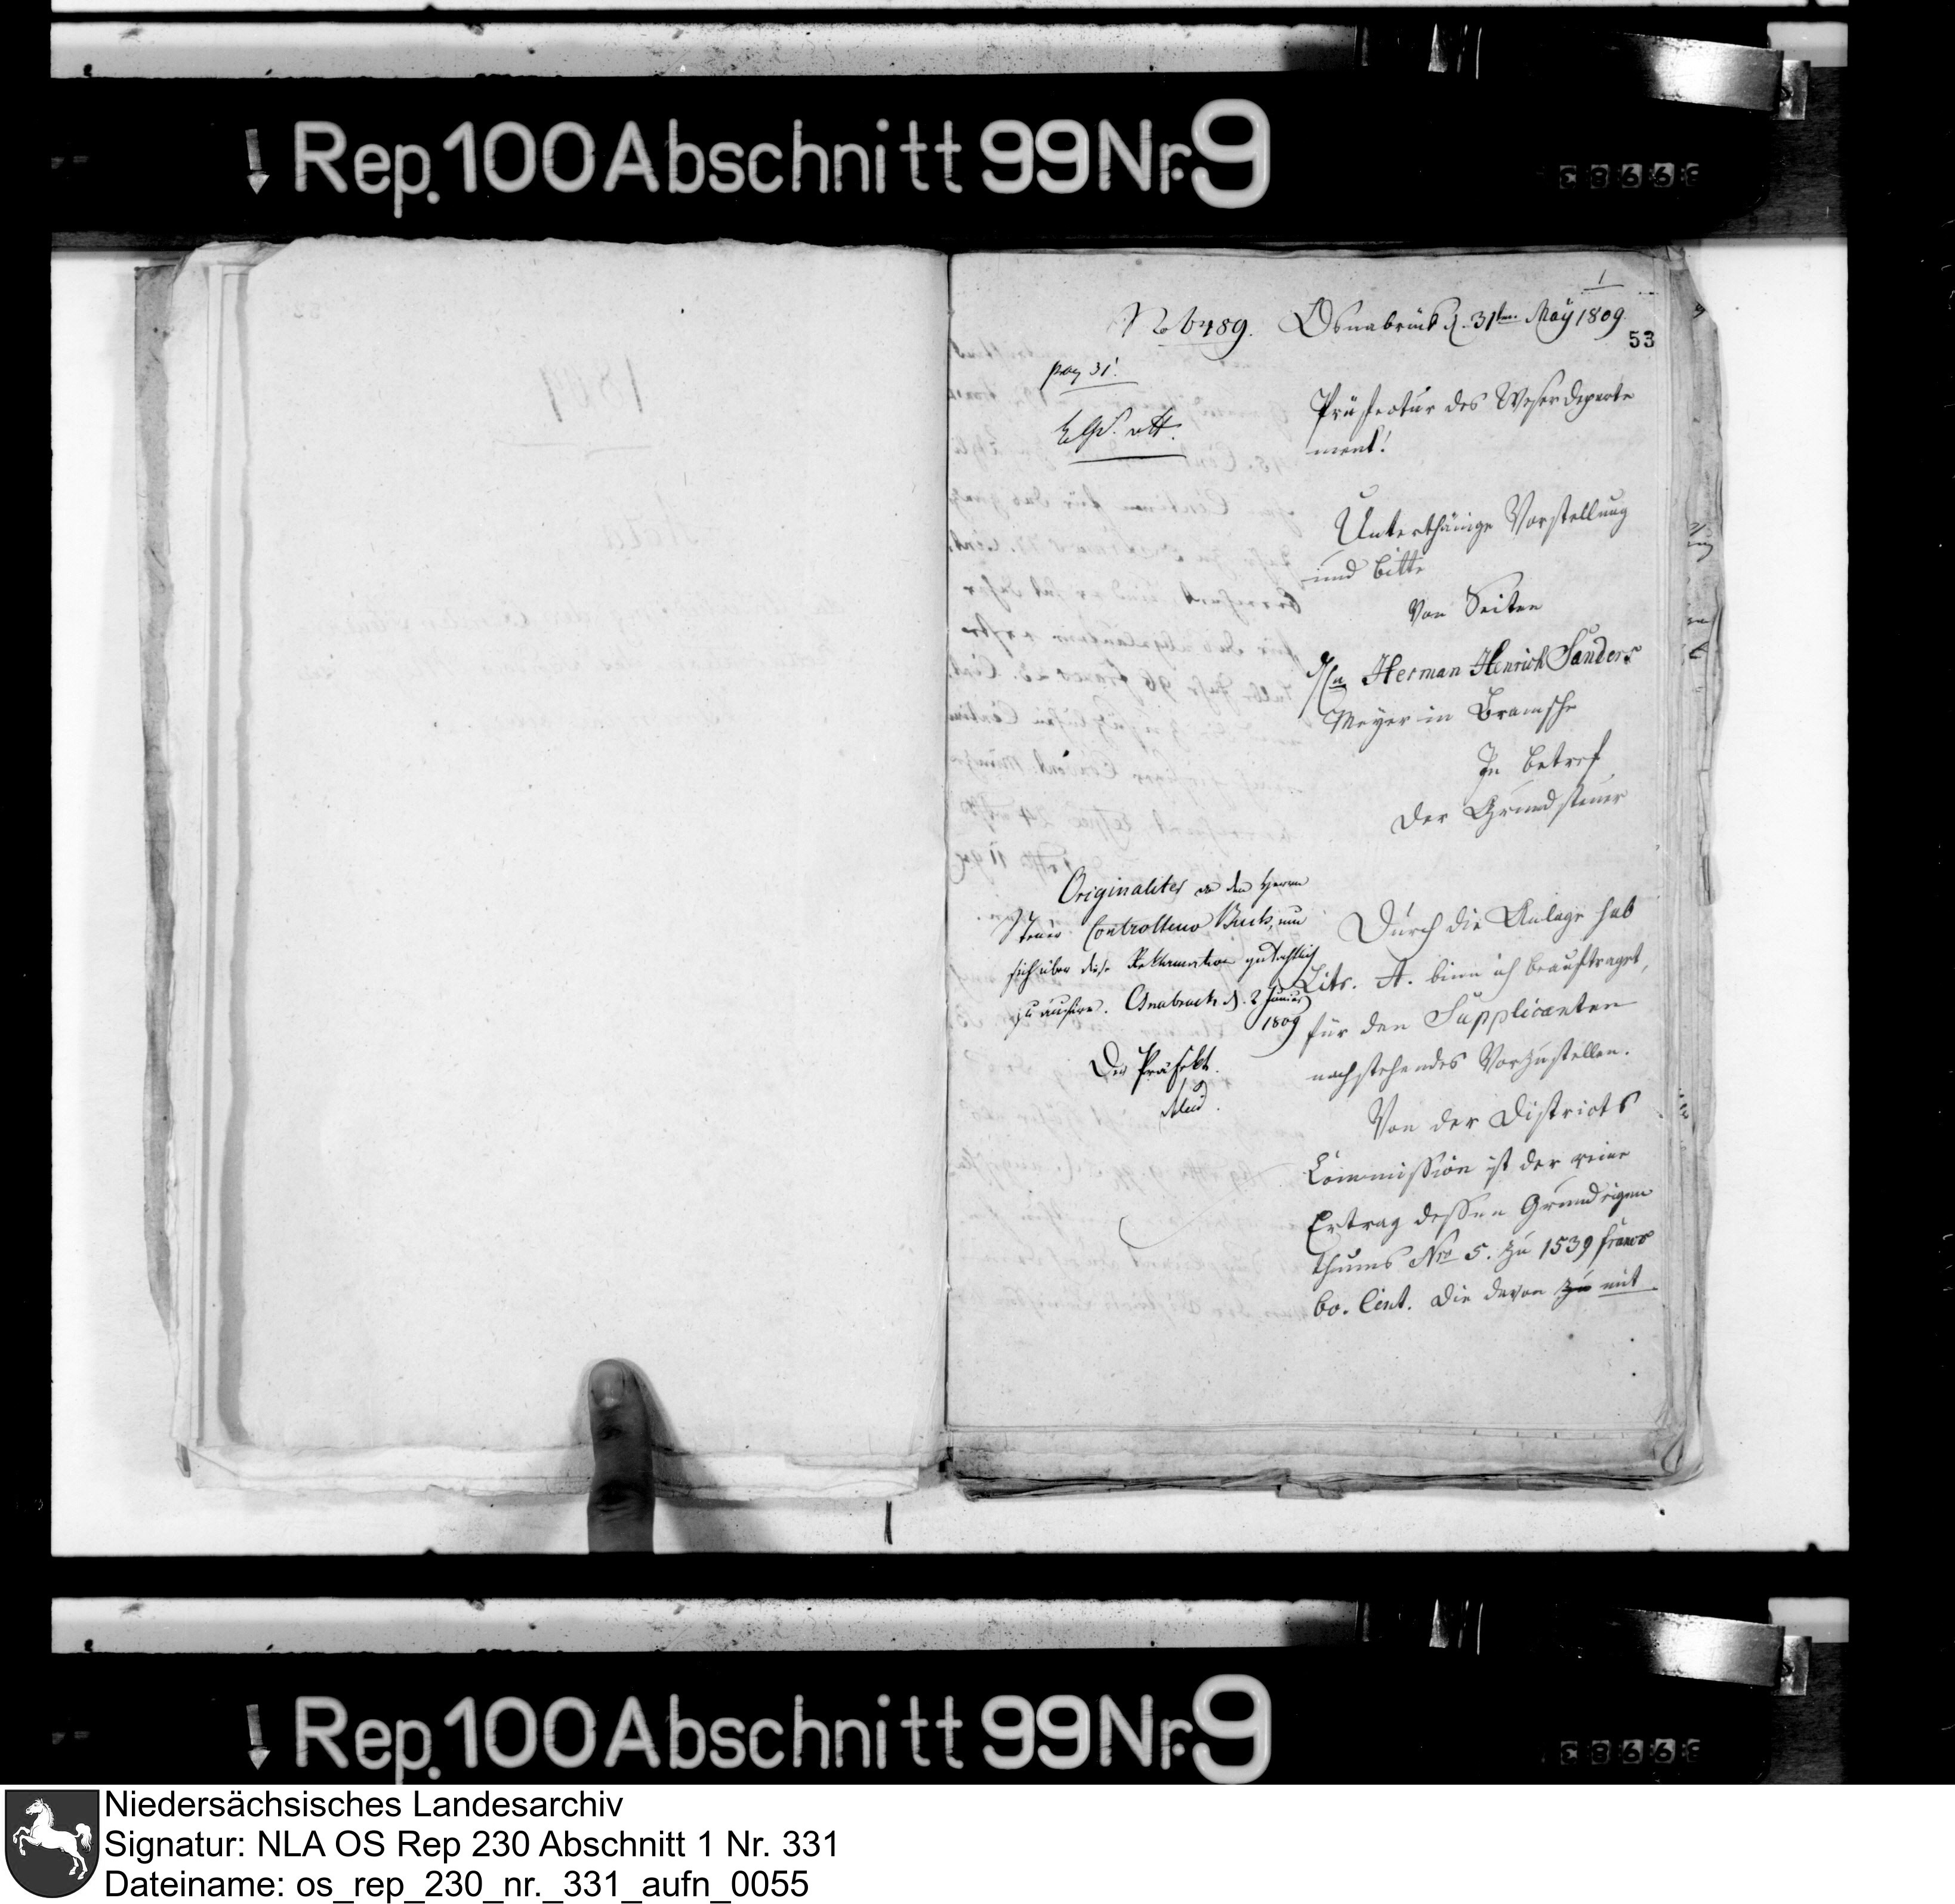 Rep. 100 Abschnitt 99 Nr. 9
No 6489. Osnabrück d. 31ten May 1809.
1
53
pag 31.
Präfectur des Weserdeparte
ment!
Unterthänige Vorstellung
und Bitte
Von Seiten
Herman Henrich Sanders
Meyer in Bramsche
In Betref
Der Grundsteuer
Originaliter an den Herrn
Steuer Controlleur Buck, um
sich über diese Reklamation gutachtlich
zu äußern. Osnabrück d. 2 Junius
1809
Der Präfekt.
Durch die Anlage sub
Litr. A. binn ich beauftraget,
für den Supplicanten
nachstehendes Vorzustellen.
Von der Districts
Commission ist der reine
Ertrag dessen Grundeigen
thums Nro 5. zu 1539 francs
60. Cent. Die davon zu mit
Rep. 100 Abschnitt 99 Nr. 9
Niedersächsisches Landesarchiv
Signatur: NLA OS Rep 230 Abschnitt 1 Nr. 331
Dateiname: os_rep_230_nr._331_aufn_0055